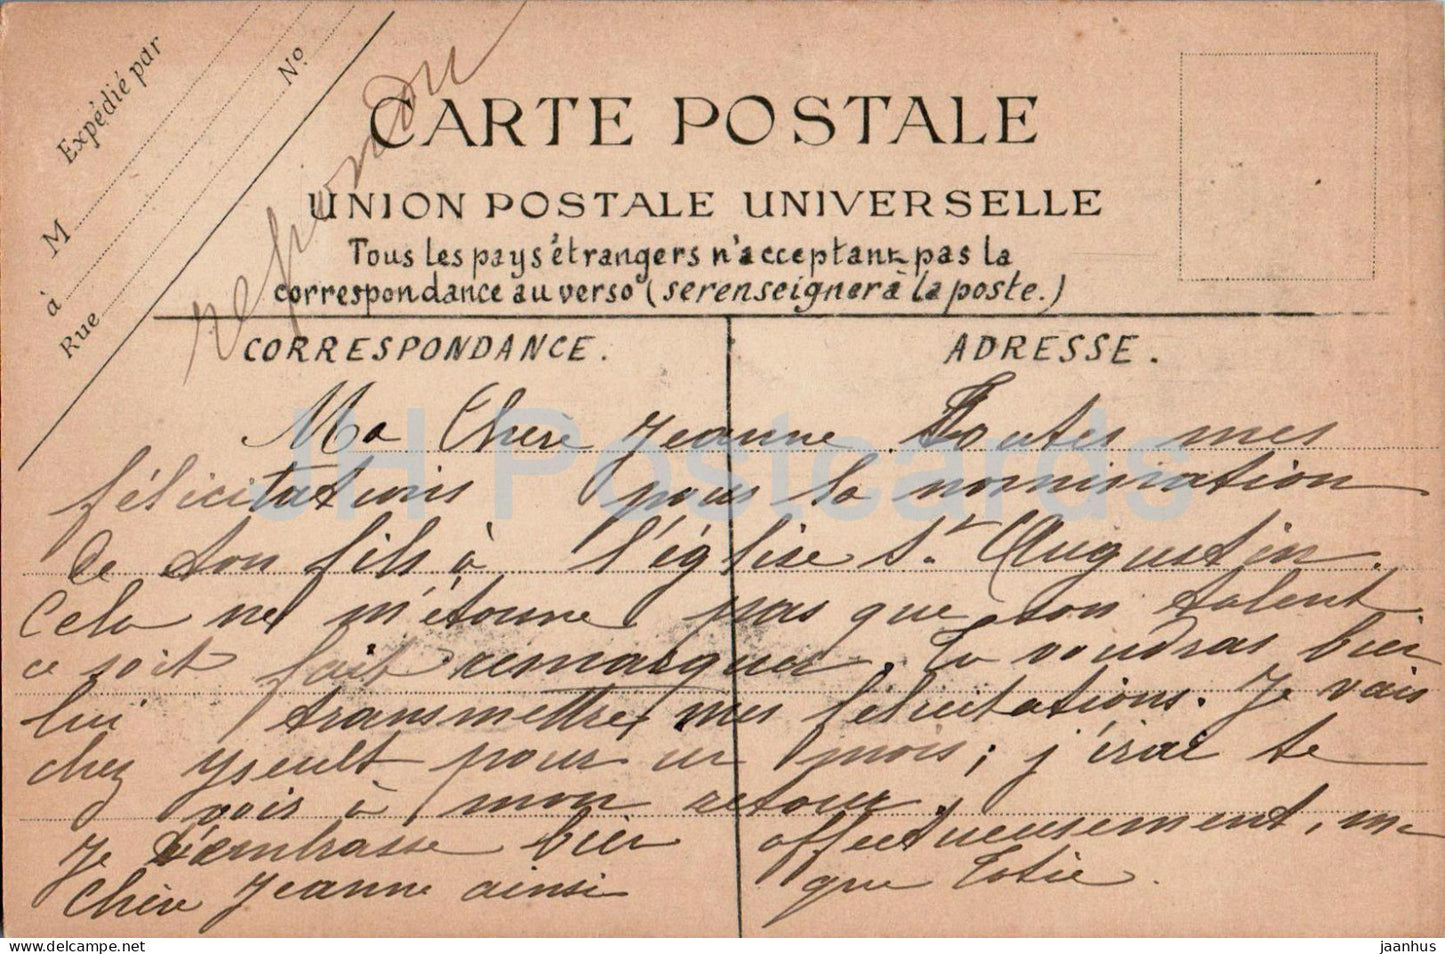 Expédié par
M
à
Rue
No.
repondu
CARTE POSTALE
UNION POSTALE UNIVERSELLE
Tous les pays étrangers n'acceptant pas la
correspondance au verso (se renseigner à la poste.)
CORRESPONDANCE.
ADRESSE.
Ma Chère Jeanne Toutes mes
félicitations pour la nomination
de ton fils à l'église St. Augustin.
Cela ne m'étonne pas que son talent
ce soit fait remarquer. Tu voudras bien
lui transmettre mes félicitations. Je vais
chez Yseult pour un mois; j'irai te
voir à mon retour.
Je t'embrasse bien affectueusement, ma
Chère Jeanne ainsi que
JH Postcards
jaanhus@delcampe.net